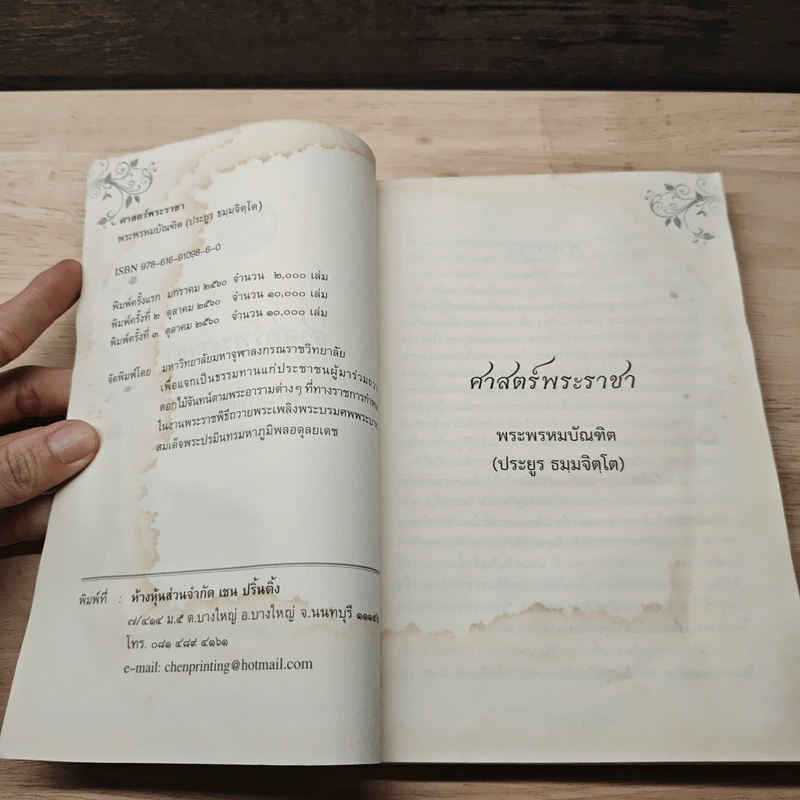 ศาสตร์พระราชา
พระพรหมบัณฑิต (ประยูร ธมฺมจิตฺโต)
ISBN 978-616-91098-6-0
พิมพ์ครั้งแรก มกราคม ๒๕๖๐ จำนวน ๒,๐๐๐ เล่ม
พิมพ์ครั้งที่ ๒ ตุลาคม ๒๕๖๐ จำนวน ๑๐,๐๐๐ เล่ม
พิมพ์ครั้งที่ ๓ ตุลาคม ๒๕๖๐ จำนวน ๑๐,๐๐๐ เล่ม
จัดพิมพ์โดย มหาวิทยาลัยมหาจุฬาลงกรณราชวิทยาลัย
เพื่อแจกเป็นธรรมทานแก่ประชาชนผู้มาร่วม
ดอกไม้จันทน์ตามพระอารามต่างๆ ที่ทางราชการ
ในงานพระราชพิธีถวายพระเพลิงพระบรมศพ
สมเด็จพระปรมินทรมหาภูมิพลอดุลยเดช
พิมพ์ที่ : ห้างหุ้นส่วนจำกัด เชน ปริ้นติ้ง
๗/๔๑๔ ม.๕ ต.บางใหญ่ อ.บางใหญ่ จ.นนทบุรี
โทร. ๐๘๑ ๔๘๙ ๔๑๖๑
e-mail: chenprinting@hotmail.com
ศาสตร์พระราชา
พระพรหมบัณฑิต
(ประยูร ธมฺมจิตฺโต)